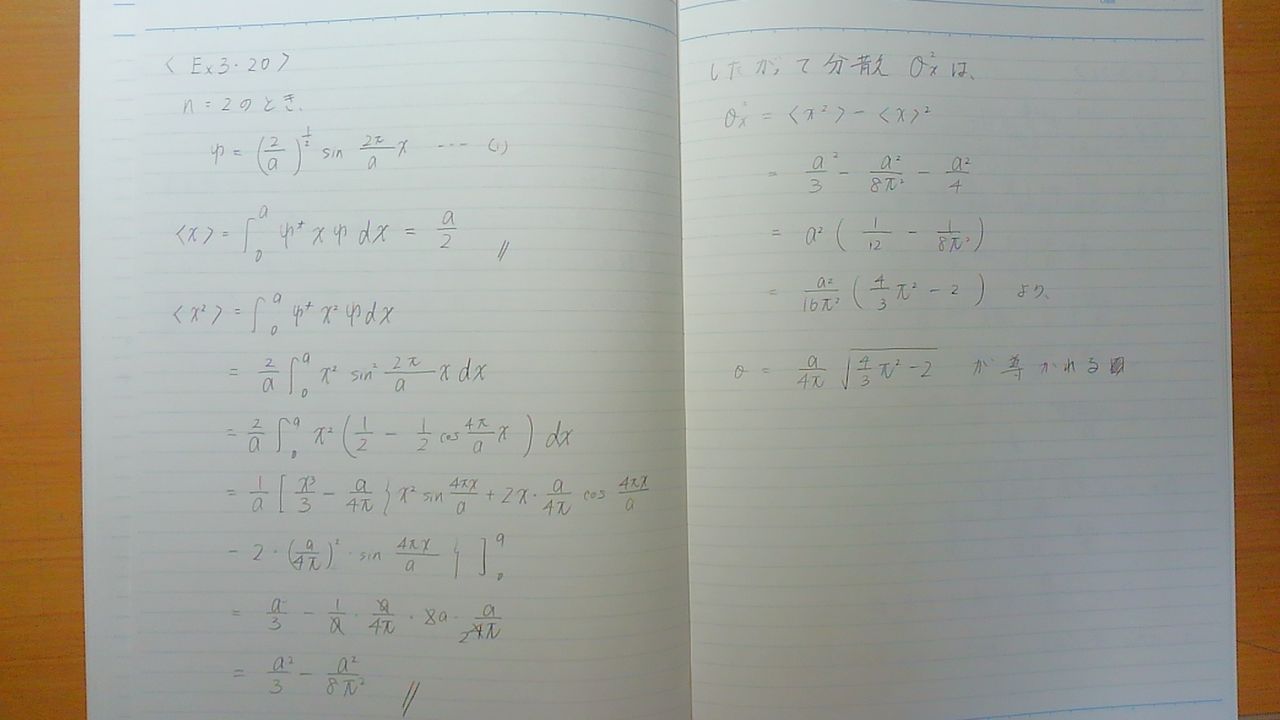 〈Ex3・20〉
n = 2のとき、
ψ = (2/a)^(1/2) sin 2π/a x ・・・ (1)
〈x〉= ∫₀ᵃ ψ* x ψ dx = a/2 //
〈x²〉= ∫₀ᵃ ψ* x² ψ dx
= 2/a ∫₀ᵃ x² sin² 2π/a x dx
= 2/a ∫₀ᵃ x² (1/2 − 1/2 cos 4π/a x) dx
= 1/a [ x³/3 − a/4π { x² sin 4πx/a + 2x・a/4π cos 4πx/a
− 2・(a/4π)²・sin 4πx/a } ]₀ᵃ
= a²/3 − 1/a・a/4π・2a・a/4π
= a²/3 − a²/8π² //
したがって分散 σx² は、
σx² = 〈x²〉−〈x〉²
= a²/3 − a²/8π² − a²/4
= a² (1/12 − 1/8π²)
= a²/16π² (4/3 π² − 2) より、
σ = a/4π √(4/3 π² − 2) が導かれる